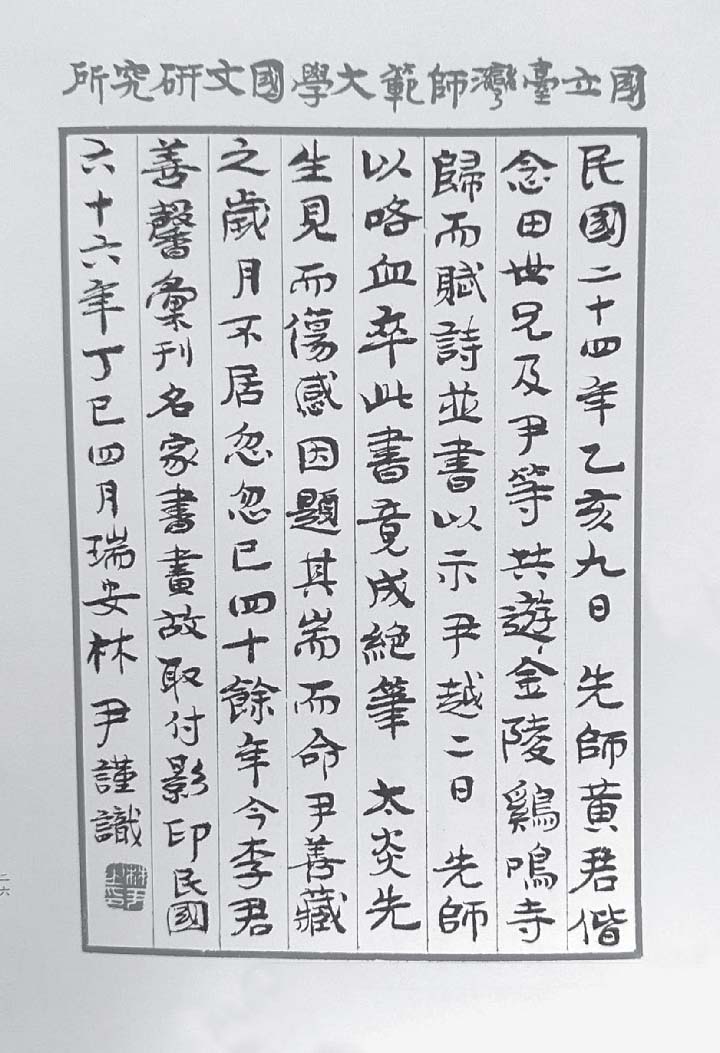 国立臺灣師範大學國文研究所
民國二十四年乙亥九日　先師黃君偕
念田世兄及尹等共遊金陵鷄鳴寺
歸而賦詩並書以示尹越二日　先師
以咯血卒此書竟成絕筆　太炎先
生見而傷感因題其耑而命尹善藏
之歲月不居忽忽已四十餘年今李君
善馨彙刊名家書畫故取付影印民國
六十六年丁巳四月瑞安林尹謹識
林尹
二六